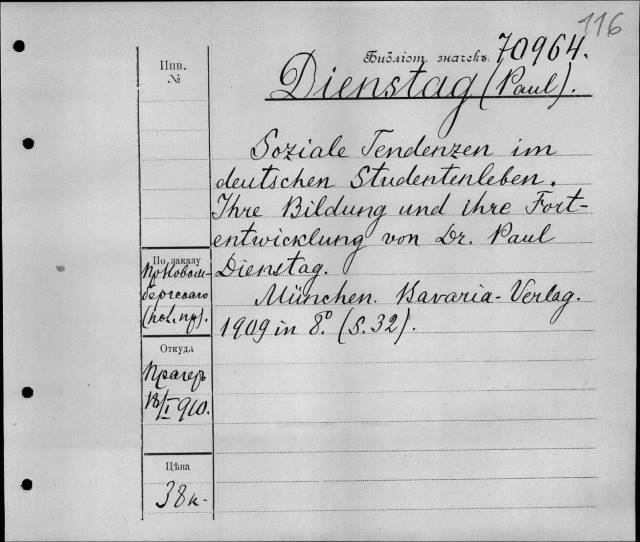 116
Библіот. значекъ 70964.
Dienstag (Paul).
Инв.
№
Soziale Tendenzen im
deutschen Studentenleben.
Ihre Bildung und ihre Fort-
entwicklung von Dr. Paul
Dienstag.
München. Bavaria-Verlag.
1909 in 8° (S. 32).
По заказу
(пол. пр).
Откуда
Прагеръ
18/I 910.
Цѣна
38 к-